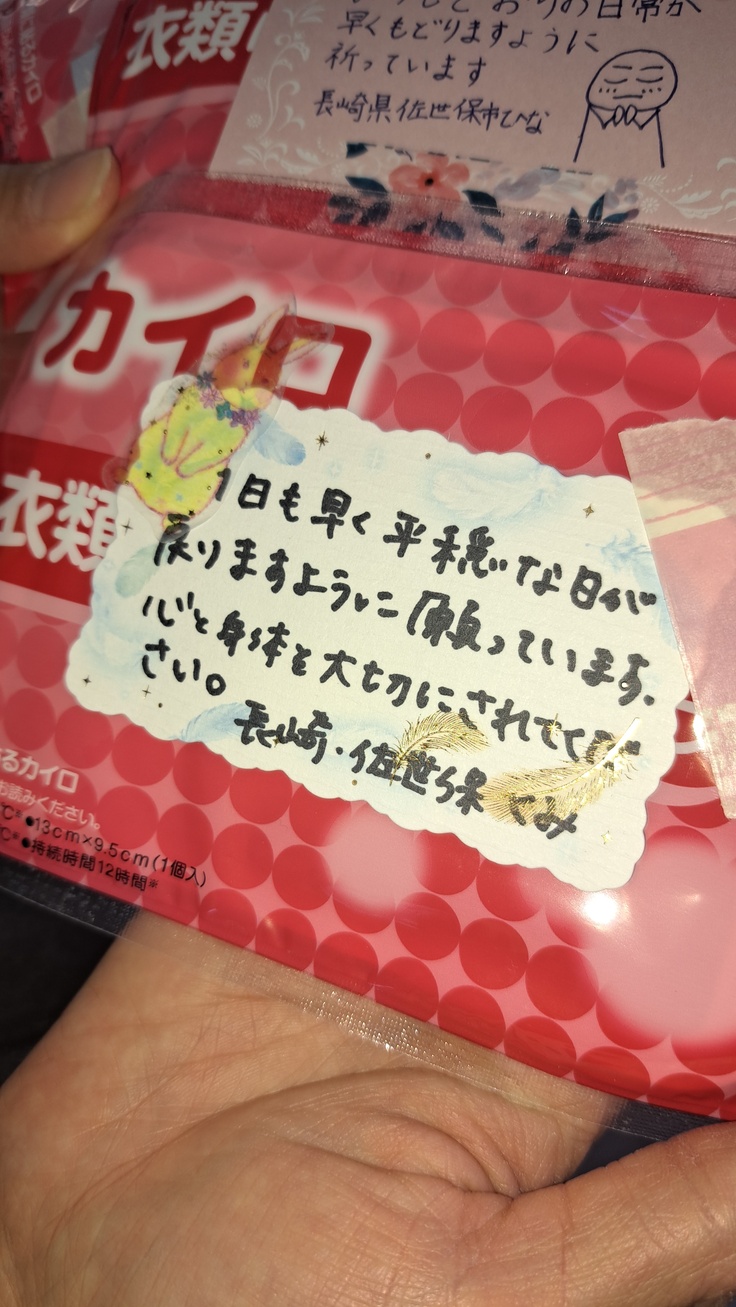 衣類
早くもどりますように
祈っています
長崎県佐世保市ひな
カイロ
衣類
1日も早く平穏な日が
戻りますように願っています.
心と身体を大切にされてくだ
さい。
長崎・佐世保
るカイロ
お読みください。
●13cm×9.5cm(1個入)
●持続時間12時間※